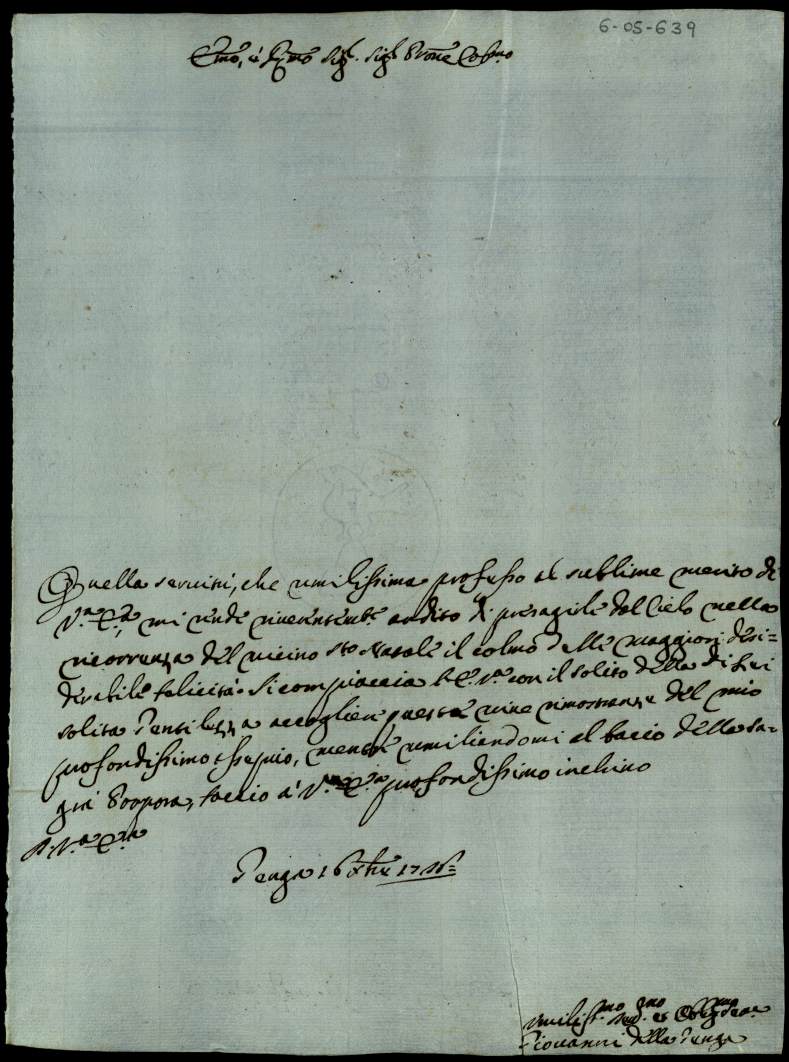 6-05-639
Emo, e Rmo Sigr. Sigr Prone Colmo
Quella servitù, che umilissima professo al sublime merito di
V.ra Em.za, mi rende riverentemte ardito di presagirle dal Cielo nella
ricorrenza del vicino Sto Natale il colmo delle maggiori desi=
derabili felicità. Si compiaccia l'E. V.ra con il solito della di Lei
solita Gentilezza accogliere queste vive rimostranze del mio
profondissimo ossequio, mentre umiliandomi al baccio della Sa=
gra Porpora, faccio à V.ra Em.za profondissimo inchino
D. V.ra Em.za
Penga 16 Xbre
Umiliss.mo et Oblig.mo
Giovanni della Penga